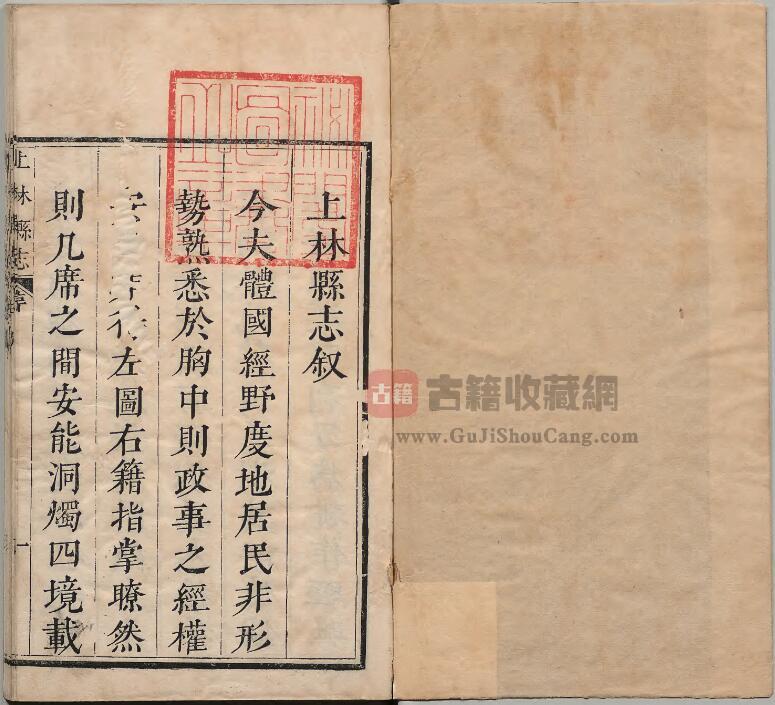 上林縣志叙
今夫體國經野度地居民非形
勢熟悉於胸中則政事之經權
左圖右籍指掌瞭然
則几席之間安能洞燭四境載
上林縣志
序
一
古籍
古籍收藏網
www.GuJiShouCang.com